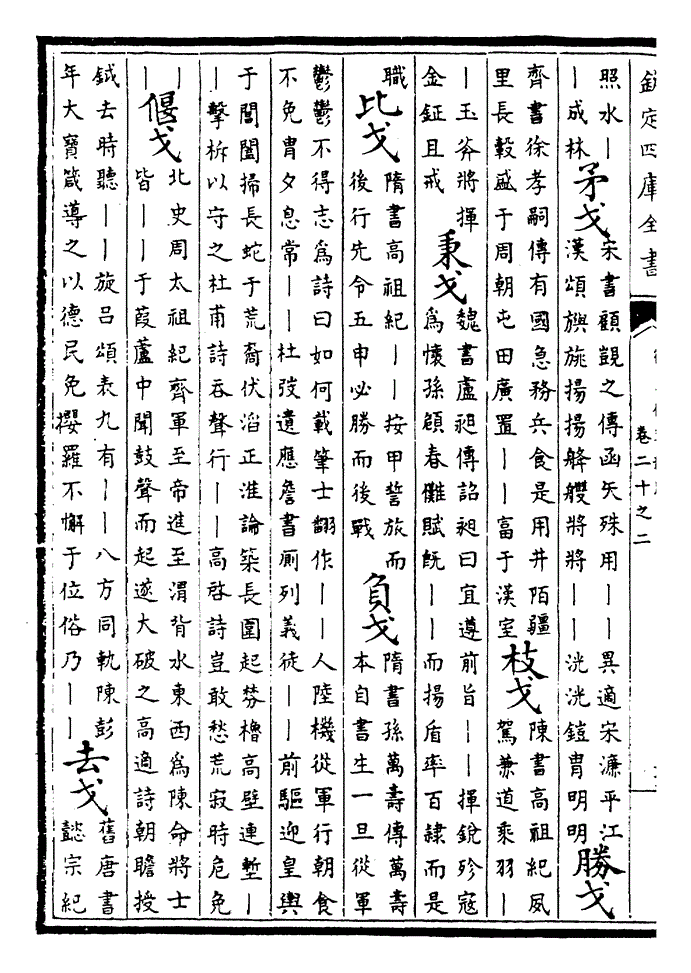 欽定四庫全書
卷二十之二
照水｜
｜成林
矛戈
宋書顧覬之傳函矢殊用｜｜異適宋濂平江
漢頌旟旐揚揚舽艭將將｜｜洸洸鎧胄明明
勝戈
齊書徐孝嗣傳有國急務兵食是用井陌疆
里長轂盛于周朝屯田廣置｜｜富于漢室
枝戈
陳書高祖紀風
駕兼道乘羽｜
｜玉斧將揮
金鉦且戒
秉戈
魏書盧昶傳詔昶曰宜遵前旨｜｜揮銳殄寇
為懷孫頠春儺賦旣｜｜而揚盾率百隷而是
職
比戈
隋書高祖紀｜｜按甲誓旅而
後行先令五申必勝而後戰
負戈
隋書孫萬壽傳萬壽
本自書生一旦從軍
鬱鬱不得志為詩曰如何載筆士翻作｜｜人陸機從軍行朝食
不免胄夕息常｜｜杜弢遺應詹書厠列義徒｜｜前驅迎皇輿
于閶闔掃長蛇于荒裔伏滔正淮論築長圍起棼櫓高壁連塹｜
｜擊柝以守之杜甫詩吞聲行｜｜高啓詩豈敢愁荒寂時危免
｜
｜
偃戈
北史周太祖紀齊軍至帝進至渭背水東西為陳命將士
皆｜｜于葭蘆中聞鼓聲而起遂大破之高適詩朝瞻授
鉞去時聽｜｜旋呂頌表九有｜｜八方同軌陳彭
年大寶箴導之以德民免攖羅不懈于位俗乃｜｜
去戈
舊唐書
懿宗紀